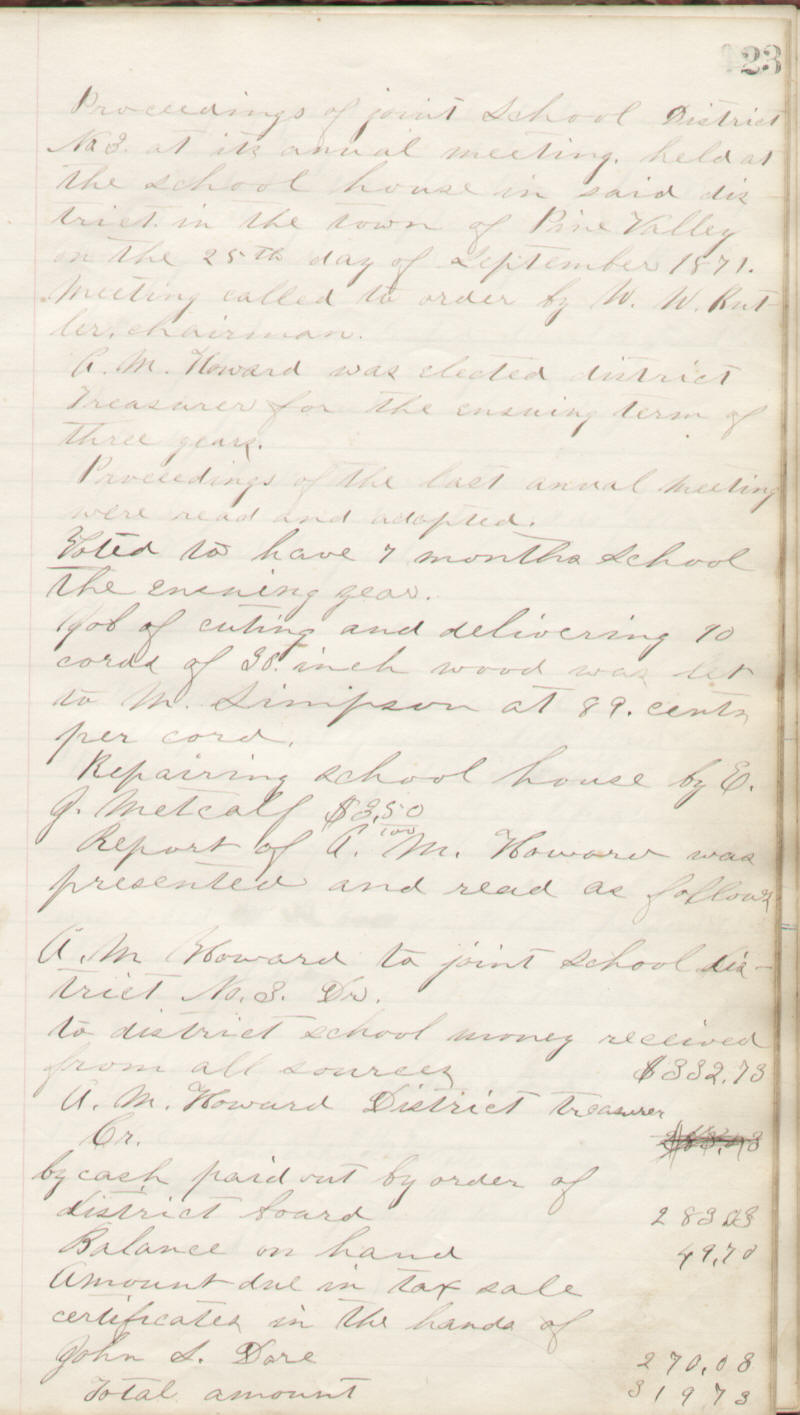 123
Proceedings of joint School District
No 3. at its anual meeting. held at
the school house in said dis
trict. in the town of Pine Valley
on the 25th day of September 1871.
Meeting called to order by W. W. But
ler. chairman.
A. M. Howard was elected district
Treasurer for the ensuing term of
three years.
Proceedings of the last anual meeting
were read and adopted.
Voted to have 7 months School
the ensuing year.
Job of cuting and delivering 10
cords of 38. inch wood was let
to M. Simpson at 89. cents
per cord.
Repairing school house by E.
J. Metcalf $3,50/100
Report of A. M. Howard was
presented and read as follows
A. M Howard to joint School dis-
trict No. 3. Dr.
to district school money received
from all sources $332.73
A. M. Howard District treasurer
Cr.
by cash paid out by order of
district board 283 03
Balance on hand 49,70
Amount due in tax sale
certificates in the hands of
John S. Dore 270,03
Total amount 319 73